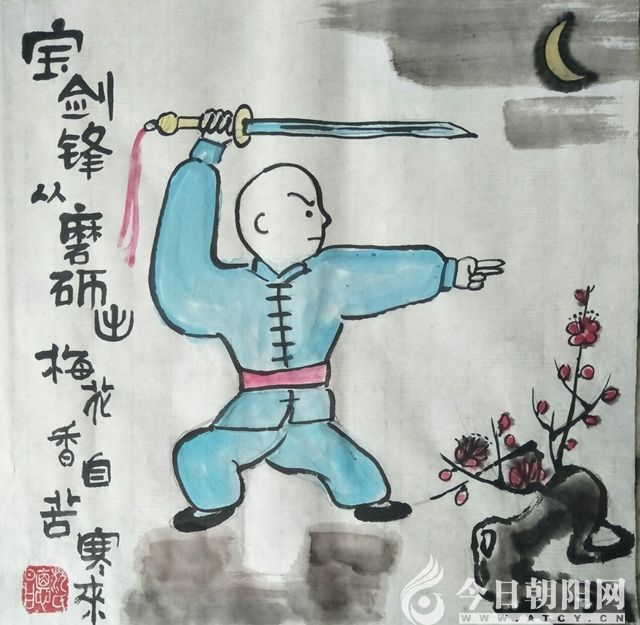 宝剑锋从磨砺出
梅花香自苦寒來
今日朝阳网
WWW.ATCY.CN